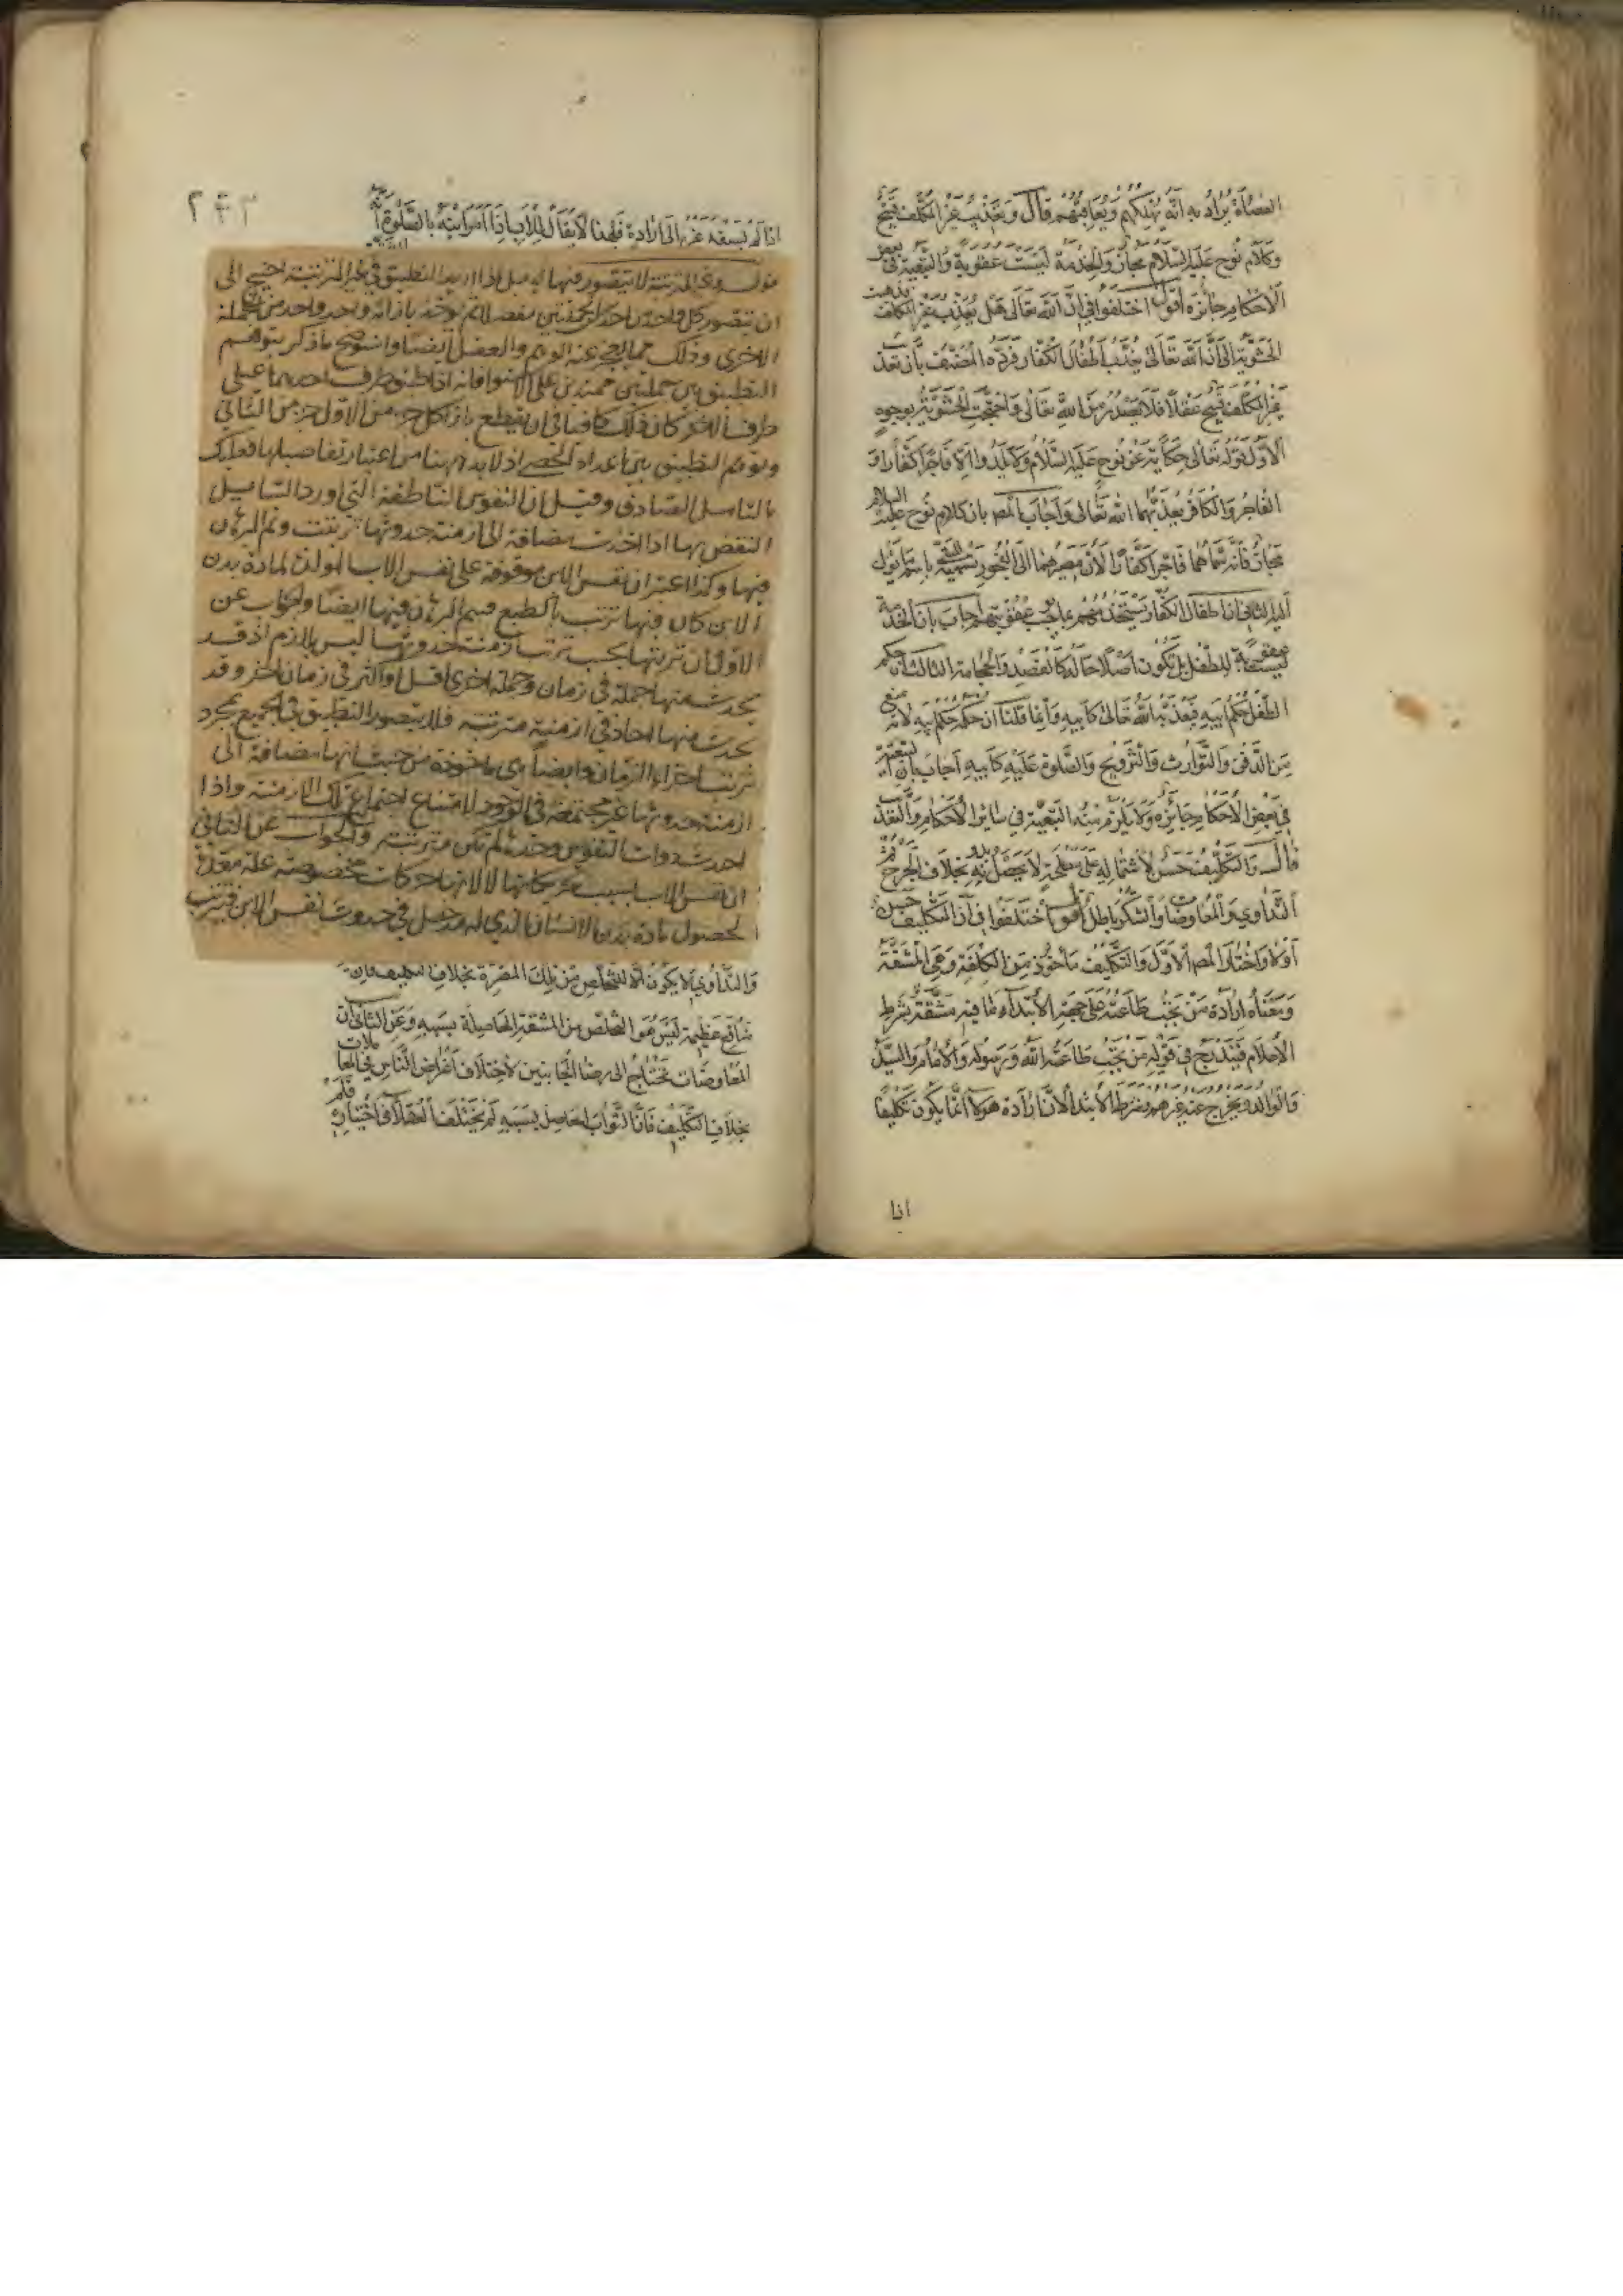 العصاة يراد به انه يهلكهم ويعاقبهم قال وتعذيب غير المكلف قبيح
وكلام نوح عليه السلام مجاز والخدمة ليست عقوبة والتبعية في بعض
الاحكام جائزة اقول اختلفوا في ان الله تعالى هل يعذب غير المكلف فذهبت
الحشوية الى ان الله تعالى يعذب اطفال الكفار فرده المصنف بان تعذيب
غير المكلف قبيح عقلا فلا يصدر من الله تعالى واحتجت الحشوية بوجوه
الاول قوله تعالى حكاية عن نوح عليه السلام ولا يلدوا الا فاجرا كفارا و
الفاجر والكافر يعذبهما الله تعالى واجاب المص بان كلام نوح عليه السلام
مجاز فانه سماهما فاجرا كفارا لان مصيرهما الى الفجور تسمية الشئ باسم ما يؤل
اليه الثاني ان اطفال الكفار يستخدمونهم عقوبتهم اجاب بان الخدمة
ليست عقوبة للطفل بل تكون اصلاحا له كالفصد والحجامة الثالث ان حكم
الطفل حكم ابيه فيعذبه الله تعالى كابيه وانما قلنا ان حكمه حكم ابيه لانه منع
من الدفن والتوارث والتزويج والصلوة عليه كابيه اجاب بان التبعية
في بعض الاحكام جائزة ولا يلزم منه التبعية في سائر الاحكام والتعذيب
قال والتكليف حسن لاشتماله على مصلحة لا تحصل بدونه بخلاف الجرح ثم
التداوي والمعاوضات والشكر باطل اقول اختلفوا في ان التكليف حسن
اولا واختار المص الاول والتكليف مأخوذ من الكلفة وهي المشقة
ومعناه ارادة من تجب طاعته على جهة الابتداء ما فيه مشقة بشرط
الاعلام فيندرج في قوله من تجب طاعته الله ورسوله والامام والسيد
والوالد ويخرج عنه غيرهم وشرط الابتداء لان ارادة هؤلاء انما يكون تكليفا
اذا
٢٤٣
اذا لم يسبقه غيره الى ارادة فلهذا لا يقال للاب اذا امر ابنه بالصلوة انه
وغير المترتبة لا يتصور فيها التطبيق في غير المترتبة احتيج الى
ان يتصور كل واحد واحد من الجملتين مفصلا ثم يؤخذ بازائه واحد واحد من الجملة
الاخرى وذلك مما يعجز عنه الوهم والعقل ايضا واستوضح ما ذكر بتوهم
التطبيق بين جملتين ممتدتين على الاستواء فانه اذا طبق طرف احديهما على
طرف الاخر كان ذلك كافيا في ان يقطع بازاء كل جزء من الاول جزء من الثاني
وتوهم التطبيق بين اعداد الحصى اذ لا بد ههنا من اعتبار تفاصيلها فعليك
بالتأمل الصادق وقيل ان النفوس الناطقة التي اورد السائل
النقض بها اذا اخذت مضافة الى ازمنة حدوثها ترتبت وتم البرهان
فيها وكذا اعتبر ان نفس الابن موقوفة على نفس الاب المولد لمادة بدن
الابن كان فيها ترتب بالطبع فيتم البرهان فيها ايضا والجواب عن
الاول ان ترتبها بحسب ترتب ازمنة حدوثها ليس بلازم اذ قد
يحدث منها جملة في زمان وجملة اخرى اقل او اكثر في زمان اخر وقد
يحدث منها احاد في ازمنة مترتبة فلا يتصور التطبيق في الجميع بمجرد
ترتب اجزاء الزمان وايضا هي ماخوذة من حيث انها مضافة الى
ازمنة حدوثها غير مجتمعة في الوجود لامتناع اجتماع تلك الازمنة واذا
اخذت ذوات النفوس وحدها لم تكن مترتبة والجواب عن الثاني
ان نفس الاب بسبب تحريكاتها لالاتها حركات مخصوصة علة معدة
لحصول مادة بدن الانسان الذي له مدخل في حدوث نفس الابن فترتب
والتداوي لا يكون الا للتخلص من تلك المضرة بخلاف التكليف فان
منافع عظيمة ليس هو التخلص من المشقة الحاصلة بسببه وعن الثاني ان
المعاوضات تحتاج الى رضا الجانبين لاختلاف اغراض الناس في المعاملات
بخلاف التكليف فان الثواب الحاصل بسببه لم يختلف العقلاء في اختياره فلم